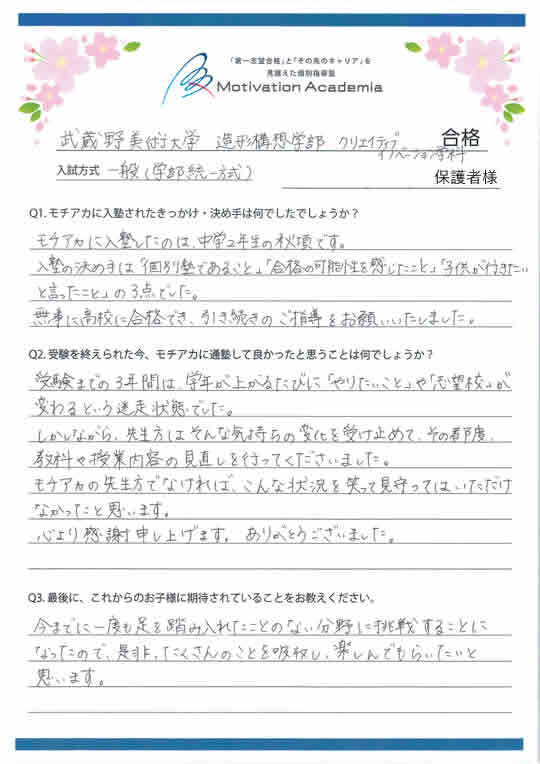 「第一志望合格」と「その先のキャリア」を
見据えた個別指導塾
Motivation Academia
武蔵野美術大学 造形構想学部 クリエイティブ
イノベーション学科 合格
入試方式 一般(学部統一方式)
保護者様
Q1. モチアカに入塾されたきっかけ・決め手は何でしたでしょうか?
モチアカに入塾したのは、中学2年生の秋頃です。
入塾の決め手は「個別塾であること」「合格の可能性を感じたこと」「子供が行きたい
と言ったこと」の3点でした。
無事に高校に合格でき、引き続きのご指導をお願いいたしました。
Q2. 受験を終えられた今、モチアカに通塾して良かったと思うことは何でしょうか?
受験までの3年間は、学年が上がるたびに「やりたいこと」や「志望校」が
変わるという迷走状態でした。
しかしながら、先生方はそんな気持ちの変化を受け止めて、その都度、
教科や授業内容の見直しを行ってくださいました。
モチアカの先生方でなければ、こんな状況を笑って見守ってはいただけ
なかったと思います。
心より感謝申し上げます。 ありがとうございました。
Q3. 最後に、これからのお子様に期待されていることをお教えください。
今までに一度も足を踏み入れたことのない分野に挑戦することに
なったので、是非、たくさんのことを吸収し、楽しんでもらいたいと
思います。